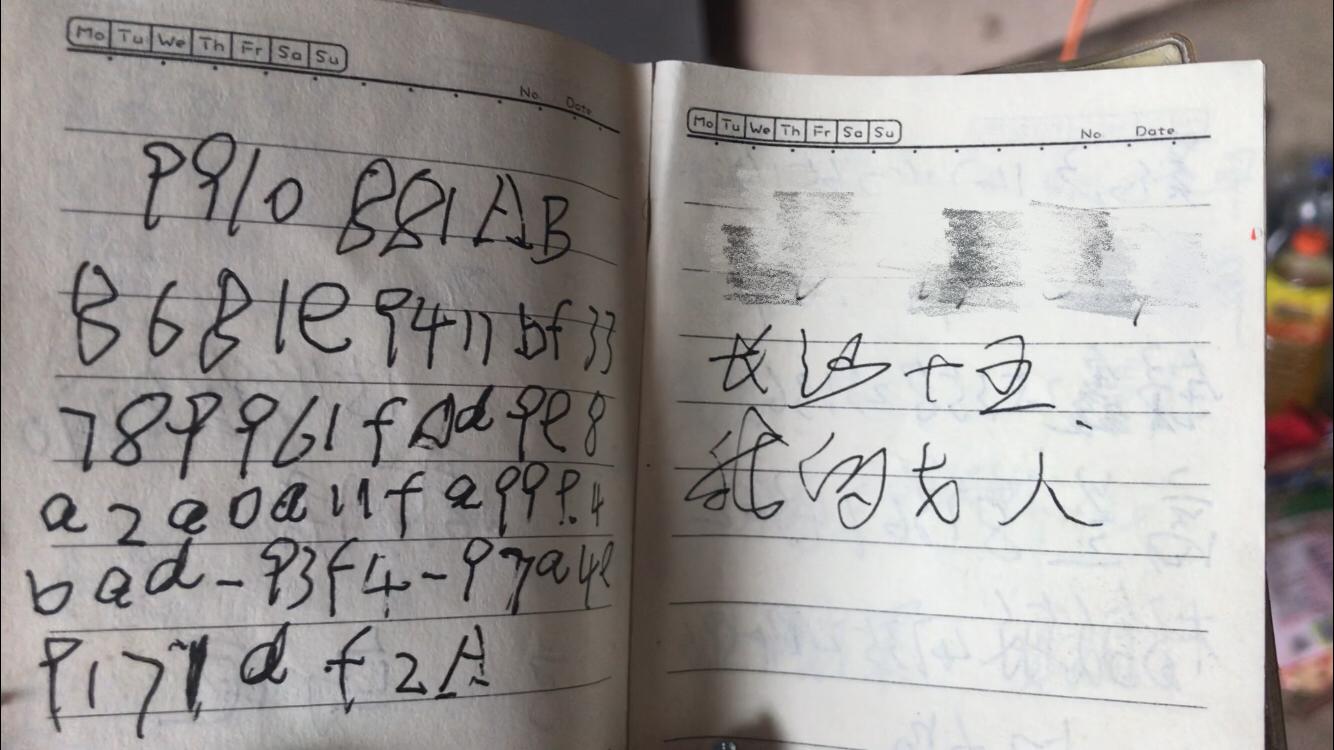 Mo Tu We Th Fr Sa Su
No. Date
9910 881AB
8681e9411bf33
7899961fAd9e8
a2a0a11fa999.4
bad-93f4-97a4e
9171df2A
Mo Tu We Th Fr Sa Su
No. Date
长沙十五
我的女人